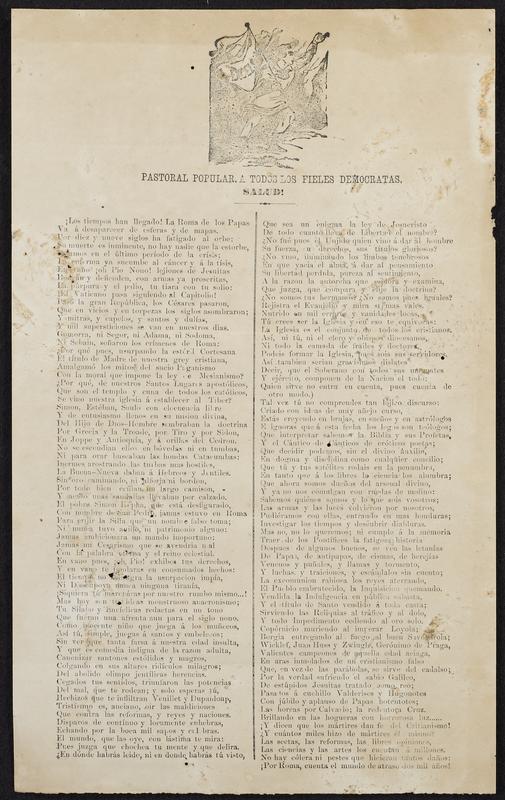 PASTORAL POPULAR. A TODOS LOS FIELES DEMOCRATAS.
SALUD!
¡Los tiempos han llegado! La Roma de los Papas
Va á desaparecer de esferas y de mapas.
Por diez y nueve siglos ha fatigado al orbe;
Su muerte es inminente, no hay nadie que la estorbe,
Estamos en el último período de la crisis;
La reforma ya sucumbe al cáncer y á la tisis,
¡oh Pio Nono! lejiones de Jesuitas
y defienden, con armas ya proscritas,
La púrpura y el palio, tu tiara con tu solio:
¡El Vaticano pasa siguiendo al Capitolio!
Pasó la gran República, los Césares pasaron,
Que en vicios y en torpezas los siglos asombraron;
Y mitras, y capelos, y santos y dulces,
Y mil supersticiones se van en nuestros dias.
Gomorra, ni Segor, ni Adama, ni Sodoma,
Ni Seboin, soñaron los crímenes de Roma:
¿Por qué pues, usurpando la estéril Cortesana
El título de Madre de nuestra grey cristiana,
Amalgamó los mitos del sucio Paganismo
Con la moral que impone la ley de Mesianismo?
¿Por qué, de nuestros Santos Lugares apostólicos,
Que son el templo y cuna de todos los católicos,
Se vino nuestra iglesia á establecer al Tiber?
Simon, Estéban, Saulo con elocuencia libre
Y de entusiasmo llenos en su mision divina,
Del Hijo de Dios-Hombre sembraban la doctrina
Por Grecia y la Troade, por Tiro y por Sidon,
En Joppe y Antioquía, y á orillas del Cedron.
No se escondian ellos en bóvedas ni en tumbas,
Ni para orar buscaban las hondas Catacumbas:
Inermes arrostrando las turbas mas hostiles,
La Buena-Nueva daban á Hebreos y Jentiles.
Sin oro caminando, ni alforja ni bordon,
Por todo bien tenian un largo camison,
Y medio unas sandalias llevaban por calzado.
El pobre Simon Kepha, que está desfigurado,
Con nombre de San Pedro, jamas estuvo en Roma
Para erijir la Silla que su nombre falso toma;
Ni nunca tuvo asilo, ni patrimonio alguno:
Jamas ambicionara un mando inoportuno:
Jamas un Cesarismo que se avenia mal
Con la palabra eterna y el reino celestial.
En vano pues, ¡oh, Pio! exhibes tus derechos,
Y en vano te escudaras en consumados hechos:
El tiempo no lejitima la usurpacion impía,
Ni Dios apoya nunca ninguna tiranía,
¡Siquiera tú marcháras por nuestro rumbo mismo...!
Mas hoy son tus ideas monstruoso anacronismo;
Tu Sílabo y Encíclicas redactas en mal tono
Que fueran una afrenta aun para el siglo nono.
Como inocente niño que juega á los muñecos,
Así tú, simple, juegas á santos y embelecos:
Sin ver que tanta farsa á nuestra edad insulta,
Y que es comedia indigna de la razon adulta,
Canonizar santones estólidos y magros,
Colgando en sus altares ridículos milagros;
Del abolido olimpo jentílicas herencias.
Cegados tus sentidos, trinufaron las potencias
Del mal, que te rodean; y solo esperas tú,
Hechizos que te infiltran Veuillot y Dupanloup,
Tristísimo es, anciano, oir las maldiciones
Que contra las reformas, y reyes y naciones,
Disparas de continuo y locamente enhebras,
Echando por la boca mil sapos y culebras.
El mundo, que las oye, con lástima te mira:
Pues juzga que chochea tu mente y que delira.
¿En dónde habrás leido, ni en donde habrás tú visto,
Que sea un enigma la ley de Jesucristo
De todo cuanto lleva de Libertad el nombre?
¿No fué pues el Unjido quien vino á dar al hombre
Su fuerza, su derechos, sus títulos gloriosos?
¿No vino, iluminando los limbos tenebrosos
En que yacia el alma, á dar al pensamiento
Su libertad perdida, pureza al sentimiento,
A la razon la antorcha que esplora y examina,
Que juzga, que compara y elije la doctrina?
¿No somos tus hermanos? ¿No somos pues iguales?
Rejistra el Evanjelio y mira si mas vales.
Nutrido en mil errores y vanidades locas,
Tú crees ser la Iglesia y en eso te equivocas:
La Iglesia es el conjunto de todos los cristianos.
Así, ni tú, ni el clero y obispos diocesanos,
Ni todo la canalla de frailes y doctores,
Podeis formar la Iglesia, pues sois sus servidores:
Así tambien serian gravísimos dislates
Decir, que el Soberano con todos sus magnates
Y ejército, componen la de Nacion el todo:
Quien sirve no entra en cuenta, pues cuenta de
otro modo.)
Tal vez tú no comprendes tan lójico discurso:
Criado con ideas de muy añejo curso,
Estás creyendo en brujas, en sueños y en astrólogos
E ignoras que á esta fecha los legos son teólogos;
Que interpretar sabemos la Biblia y sus Profetas,
Y el Cántico de Cánticos de eróticos poetas;
Que decidir podemos, sin el divino áuxilio,
En dogma y disciplina como cualquier concilio;
Que tú y tus satélites rodais en la penumbra,
En tanto que á los libres la ciencia los alumbra;
Que ahora somos dueños del arsenal divino,
Y ya no nos comulgan con ruedas de molino:
Sabemos quiénes somos y lo que sois vosotros;
Las armas y las luces volvieron por nosotros,
Podríamos con ellas, entrando en mas honduras;
Investigar los tiempos y descubrir diabluras.
Mas no, no lo queremos; ni cumple á la memoria
Traer de los Pontífices la fatigosa historia
Despues de algunos buenos, se ven las letanías
De Papas, de antipapas, de cismas, de herejías
Venenos y puñales, y llamas y tormento,
Y luchas, y traiciones, y escándalos sin cuento;
La excomunion rabiosa los reyes aterrando,
El Pueblo embrutecido, la Inquisicion quemando.
Vendida la Indulgencia en pública subasta,
Y el título de Santo vendido á toda casta;
Sirviendo las Reliquias al tráfico y al dolo,
Y todo Impedimento cediendo al oro solo.
Copérnico muriendo al
Borgia entregando al fuego al buen Savonarola;
Wickleff, Juan Huss y Zwingle, Gerónimo de Praga,
Valientes campeones de aquella edad aciaga,
En aras inmolados de un cristianismo falso
Que, en vez de las parábolas, se sirve del cadalso;
Por la verdad sufriendo el sabio Galileo,
De estúpidos Jesuitas tratado como reo;
Pasados á cuchillo Valderises y Hugonotes
Con júbilo y aplauso de Papas hotentotes;
Las horcas por Calvario; la redentora Cruz
Brillando en las hogueras con horrorosa luz......
¿Y dicen que los mártires dan fe del Cristianismo!
¿Y cuántos miles hizo de mártires él mismo?
Las sectas, las reformas, las libres opiniones,
Las ciencias y las artes los cuentan á millones.
No hay cólera ni pestes que hicieran tantos daños:
¡Por Roma, cuenta el mundo de atraso dos mil años!